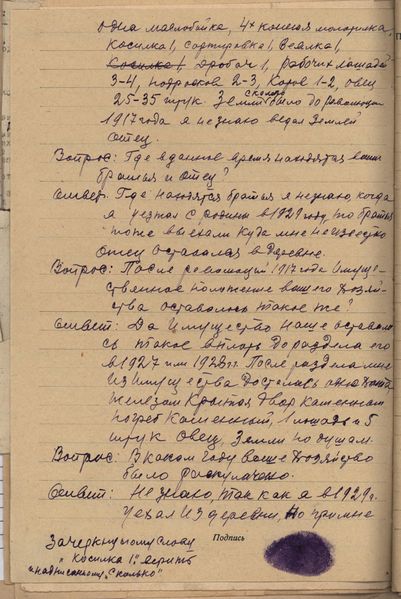 одна маслобойка, 4х конная молотилка,
косилка 1, сортировка 1, веялка 1,
косилка 1, дробач 1, рабочих лошадей
3-4, подростков 2-3, коров 1-2, овец
25-35 штук. Земли сколько было до революции
1917 года я не знаю ведал землей
отец.
Вопрос: Где в данное время находятся ваши
братья и отец?
Ответ: Где находятся братья я не знаю, когда
я уезжал с родины в 1929 году, то братья
тоже выехали куда мне неизвестно
отец оставался в деревне.
Вопрос: После революции 1917 года имуще-
ственное положение вашего хозяй-
ства оставалось такое же?
Ответ: Да имущество наше оставало
сь такое вплоть до раздела его
в 1927 или 1928 гг. После раздела мне
из имущества досталась одна хата
железом крытая двор каменный
погреб каменный, 1 лошадь и 5
штук овец, земли по душам.
Вопрос: В каком году ваше хозяйство
было раскулачено.
Ответ: Не знаю, так как я в 1929 г.
уехал из деревни, но при мне
Зачеркнутому слову
"косилка 1" верить
Подпись
"надписанному "сколько"